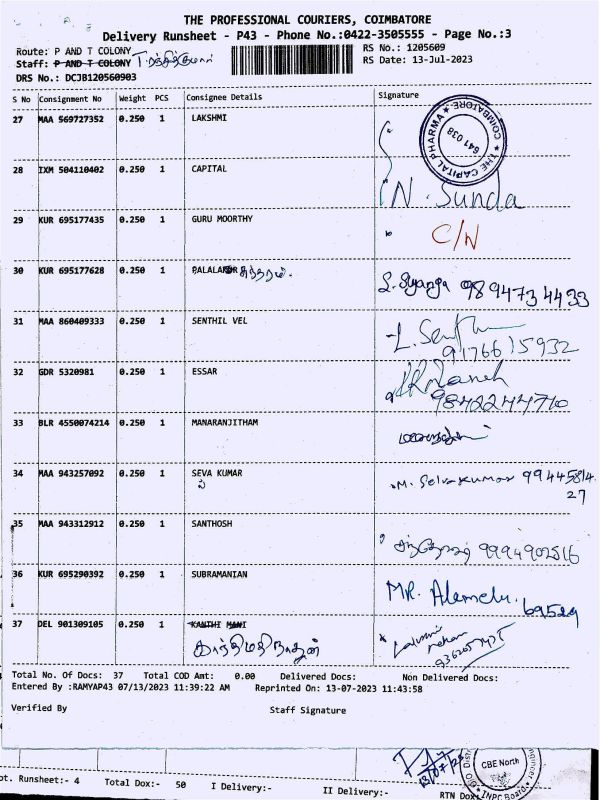 THE PROFESSIONAL COURIERS, COIMBATORE
Delivery Runsheet - P43 - Phone No.:0422-3505555 - Page No.:3
Route: P AND T COLONY
RS No.: 1205609
Staff: P AND T COLONY
RS Date: 13-Jul-2023
DRS No.: DCJB120560903
S No Consignment No Weight PCS Consignee Details Signature
27 MAA 569727352 0.250 1 LAKSHMI
THE CAPITAL PHARMA ★ COIMBATORE ★ 641 038
28 IXM 504110402 0.250 1 CAPITAL N. Sunda
29 KUR 695177435 0.250 1 GURU MOORTHY C/N
30 KUR 695177628 0.250 1 சுந்தரம். 9894734433
31 MAA 860409333 0.250 1 SENTHIL VEL
9176615932
32 GDR 5320981 0.250 1 ESSAR
9842244710
33 BLR 4550074214 0.250 1 MANARANJITHAM
34 MAA 943257092 0.250 1 SEVA KUMAR M. Selvakumar 99445814
27
35 MAA 943312912 0.250 1 SANTHOSH 9994902516
36 KUR 695290392 0.250 1 SUBRAMANIAN MR. Alamelu. 69529
37 DEL 901309105 0.250 1 KANTHI MANI
காந்திமதிநாதன்
Total No. Of Docs: 37 Total COD Amt: 0.00 Delivered Docs: Non Delivered Docs:
Entered By :RAMYAP43 07/13/2023 11:39:22 AM Reprinted On: 13-07-2023 11:43:58
Verified By Staff Signature
CBE North
pt. Runsheet:- 4 Total Dox:- 50 I Delivery:- II Delivery:- RTN Dox:-